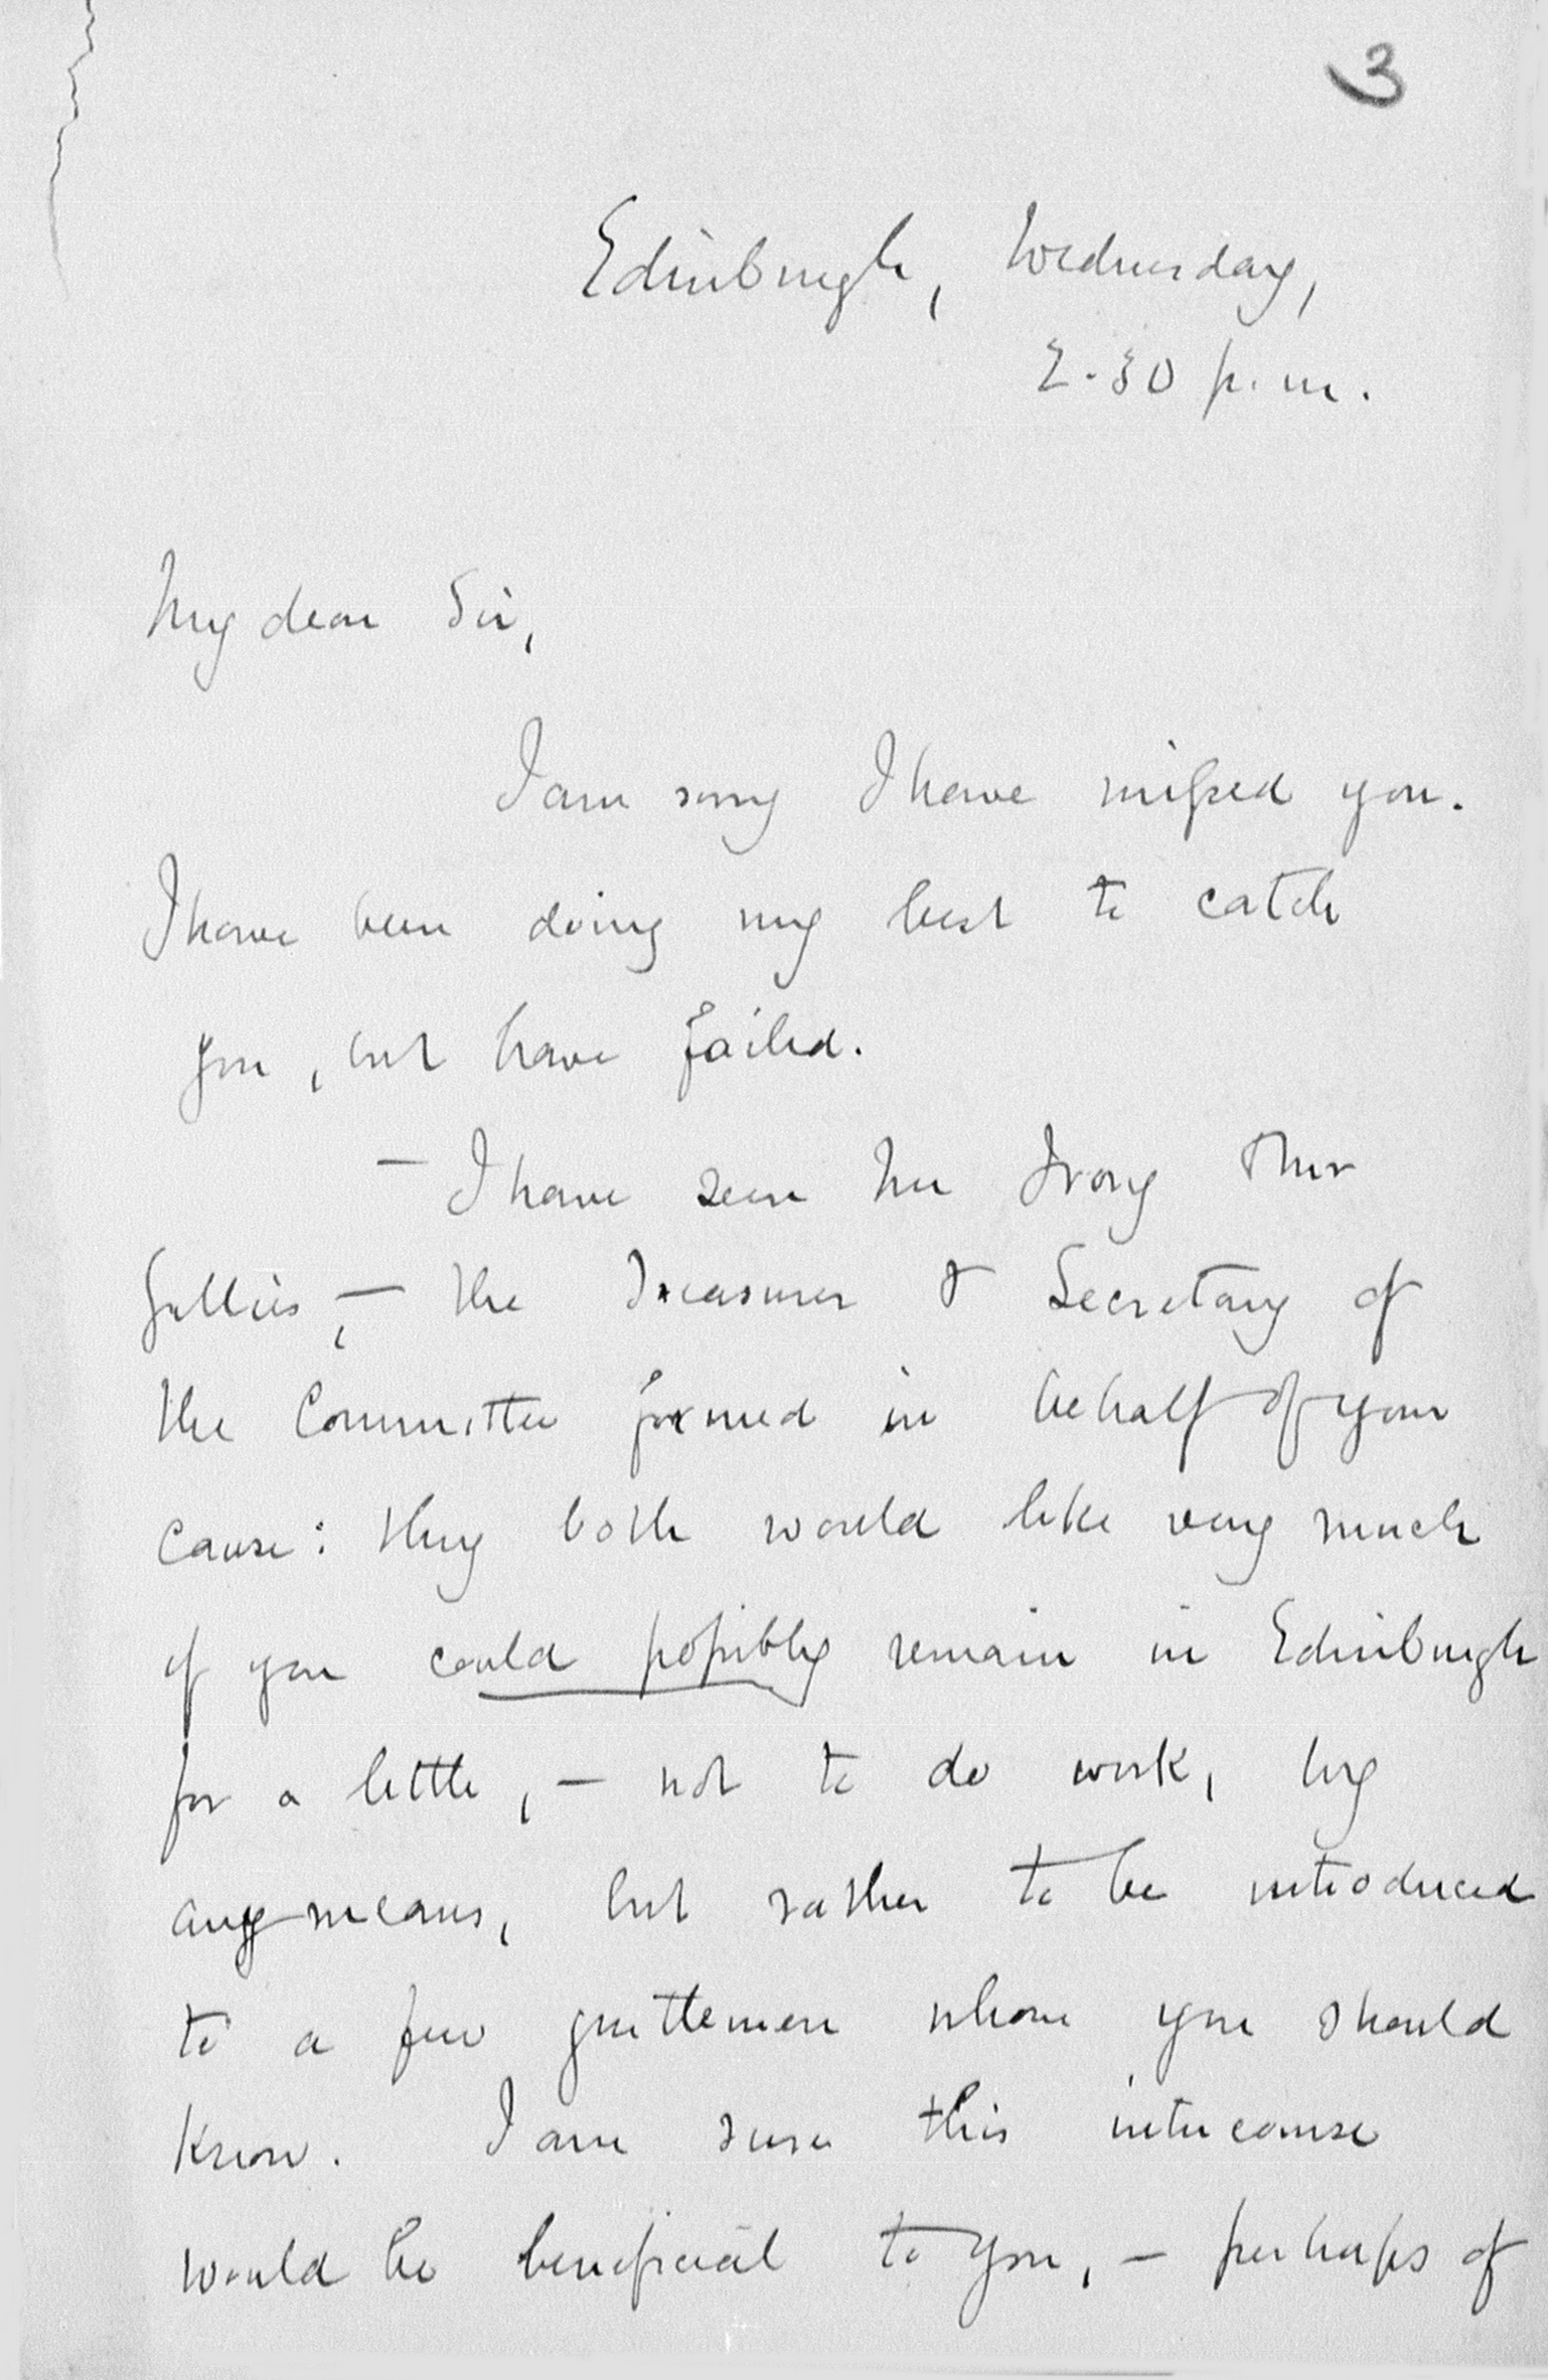 3
Edinburgh, Wednesday,
2.30 p.m.
My dear Sir,
I am sorry I have missed you.
I have been doing my best to catch
you, but have failed.
— I have seen
— the Treasurer & Secretary of
the Committee formed in behalf of your
cause: they both would like very much
if you could possibly remain in Edinburgh
for a little, — not to do work, by
any means, but rather to be introduced
to a few gentlemen whom you should
know. I am sure this intercourse
would be beneficial to you, — perhaps of